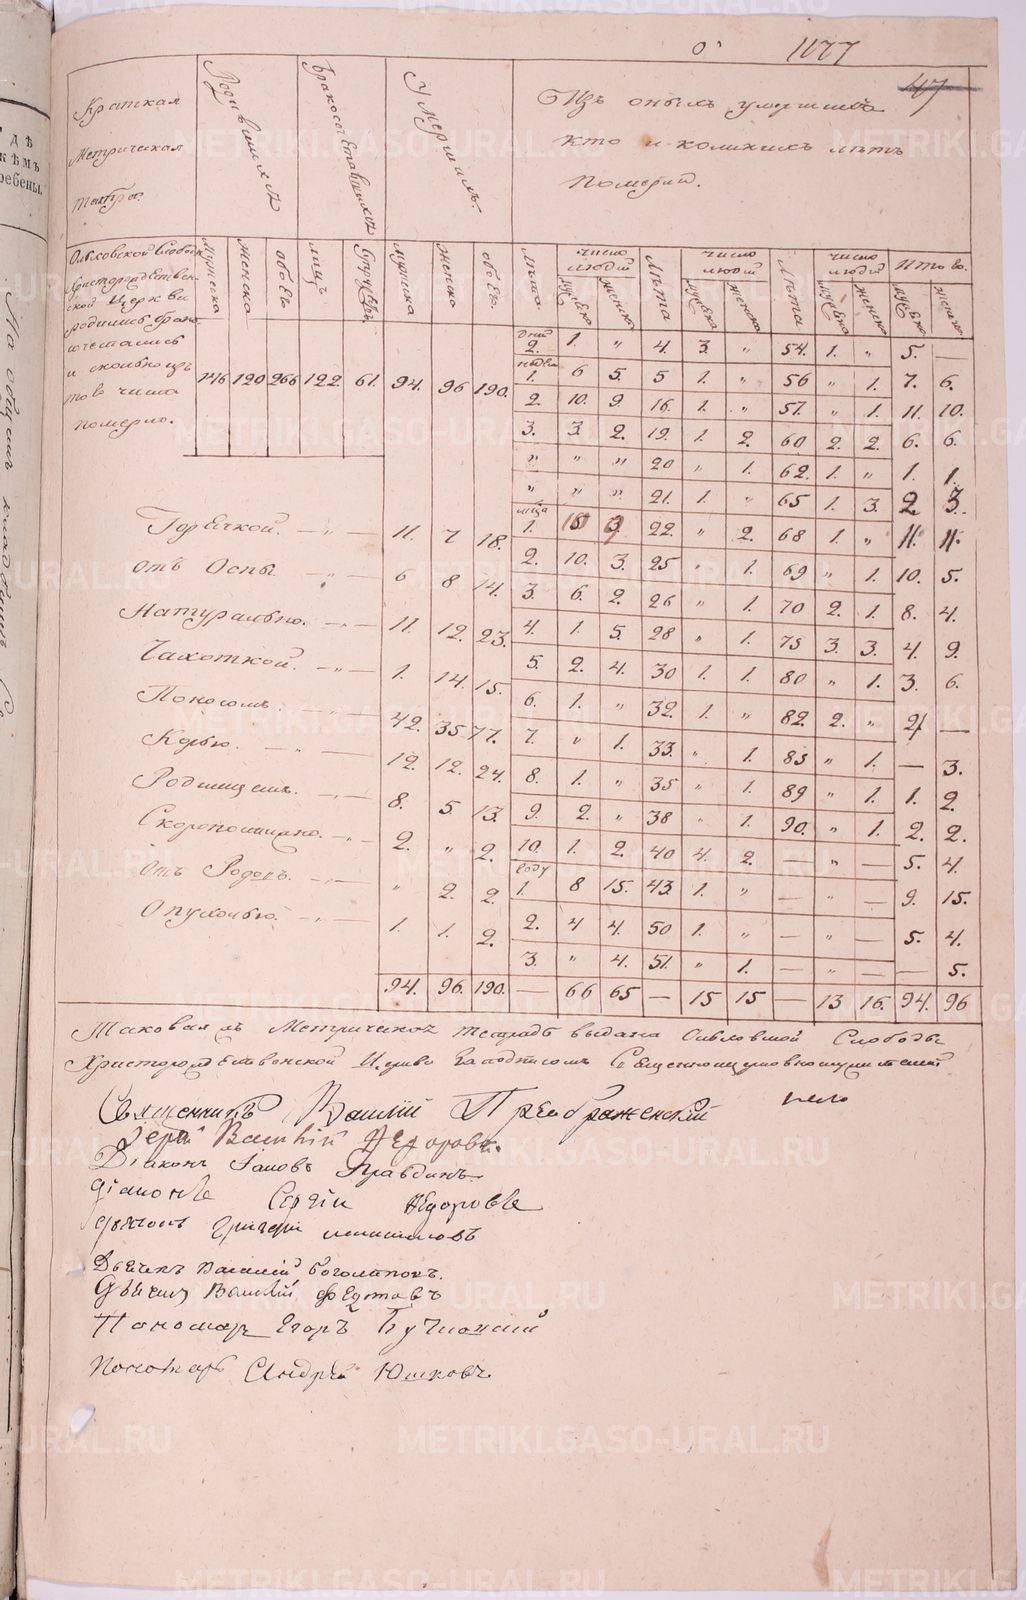 1177
47
Краткая
Метрическая
Родившихся
Бракосочетавшихся
Умершихъ.
Изъ оныхъ умершихъ
кто и коликихъ лѣтъ
померли.
Ольховской Слободы
Христорождествен-
ской Церкви
родилось брако-
сочеталось
и сколько изъ
того числа
померло.
мужска женска обоего лицъ супружествъ мужска женска обоего
146 120 266 122 61. 94. 96 190.
лѣта число людей мужска женска
Лѣта число людей мужска женска
Лѣта число людей мужска женска
Итого мужска женска
дней
2. 1. „ 4. 3. „ 54. 1. „ 5. —
недѣли
1. 6 5. 5 1. „ 56 „ 1. 7. 6.
2. 10. 9. 16. 1. „ 57. „ 1. 11. 10.
3. 3. 2. 19. 1. 2. 60 2. 2. 6. 6.
„ „ „ 20 „ 1. 62. 1. „ 1. 1.
„ „ „ 21. 1. „ 65 1. 3. 2. 3.
мѣсяца
1. 10 9 22. „ 2. 68 1. „ 11. 11.
2. 10. 3. 25 „ 1. 69 „ 1. 10. 5.
3. 6. 2. 26 „ 1. 70 2. 1. 8. 4.
4. 1. 5. 28 „ 1. 75 3. 3. 4. 9.
5. 2. 4. 30 1. 1. 80 „ 1. 3. 6.
6. 1. „ 32. 1. „ 82. 2. „ 4 —
7. „ 1. 33. „ 1. 85 „ 1. — 3.
8. 1. „ 35 „ 1. 89 „ 1. 1. 2.
9. 2. „ 38 „ 1. 90. „ 1. 2. 2.
10. 1. 2. 40 4. 2. — „ — 5. 4.
году
1. 8 15. 43. 1. „ — „ — 9. 15.
2. 4 4. 50 1. „ — „ — 5. 4.
3. „ 4. 51. „ 1. — „ — — 5.
— 66 65 — 15 15 — 13 16. 94. 96
Горячкой. — „ — 11. 7 18.
отъ Оспы — „ — 6 8 14.
Натурально. — „ — 11. 12. 23.
Чахоткой. — „ — 1. 14. 15.
Поносомъ. 42. 35 77.
Корью. — „ — 12. 12. 24.
Родимцемъ. — „ — 8. 5 13.
Скоропостижно. — „ — 2. „ 2.
отъ Родовъ. — „ — „ 2. 2.
Опухолью. — „ — 1. 1. 2.
94. 96. 190.
Таковая въ Метрическая тетрадь выдана Ольховской Слободы
Христорождественской Церкви за подписомъ Священноцерковнослужителей
Священникъ Василій Преображенскій
Іерей Василій Ѳедоровъ.
Діаконъ Іаковъ Правдинъ
діаконъ Сергій Ѳедоровъ
дьячокъ Григорій
Дьячекъ Василій Боголеповъ.
Дьячекъ Василій Федотовъ
Пономарь Егоръ
Пономарь Андрей Юшковъ.
METRIKI.GASO-URAL.RU